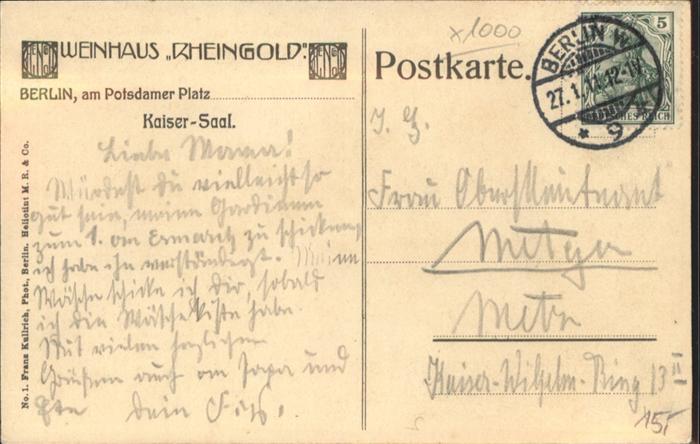 WEINHAUS „RHEINGOLD".
BERLIN, am Potsdamer Platz
Kaiser-Saal.
Liebe Mama!
Würdest du vielleicht so
gut sein, meine Gardinen
zum 1. an zu schicken,
ich habe ihn verständigt. Meine
Wäsche schicke ich dir, sobald
ich die Wäschekiste habe.
Mit vielen herzlichen
Grüßen auch an Papa und
dein
No. 1. Franz Kullrich, Phot., Berlin. Heliotint M. R. & Co.
x1000
Postkarte.
BERLIN W.
27.1.11.12-1N
* 9
5
DEUTSCHES REICH
Frau Oberstleutnant
Metzger
Metz
Kaiser-Wilhelm-Ring 13 II
15,-